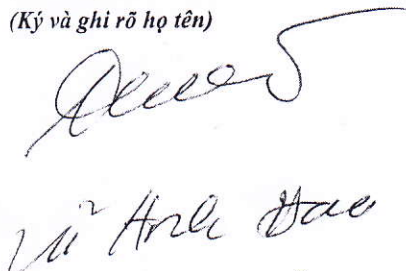 (Ký và ghi rõ họ tên)
Vũ Anh Đào